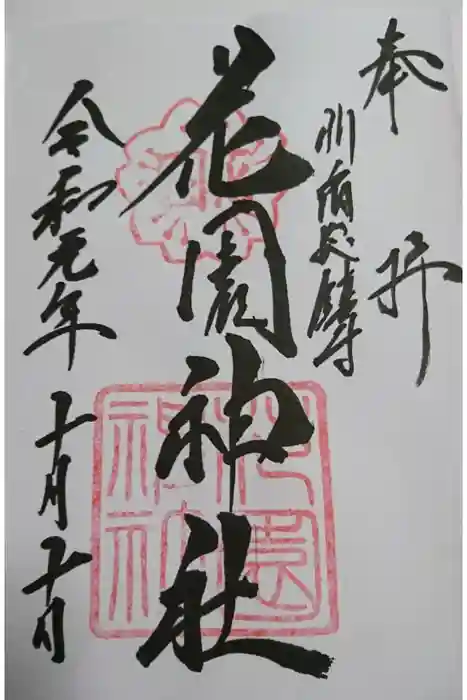 奉拝
総鎮守
花園神社
令和元年十月二十日
花園
神社